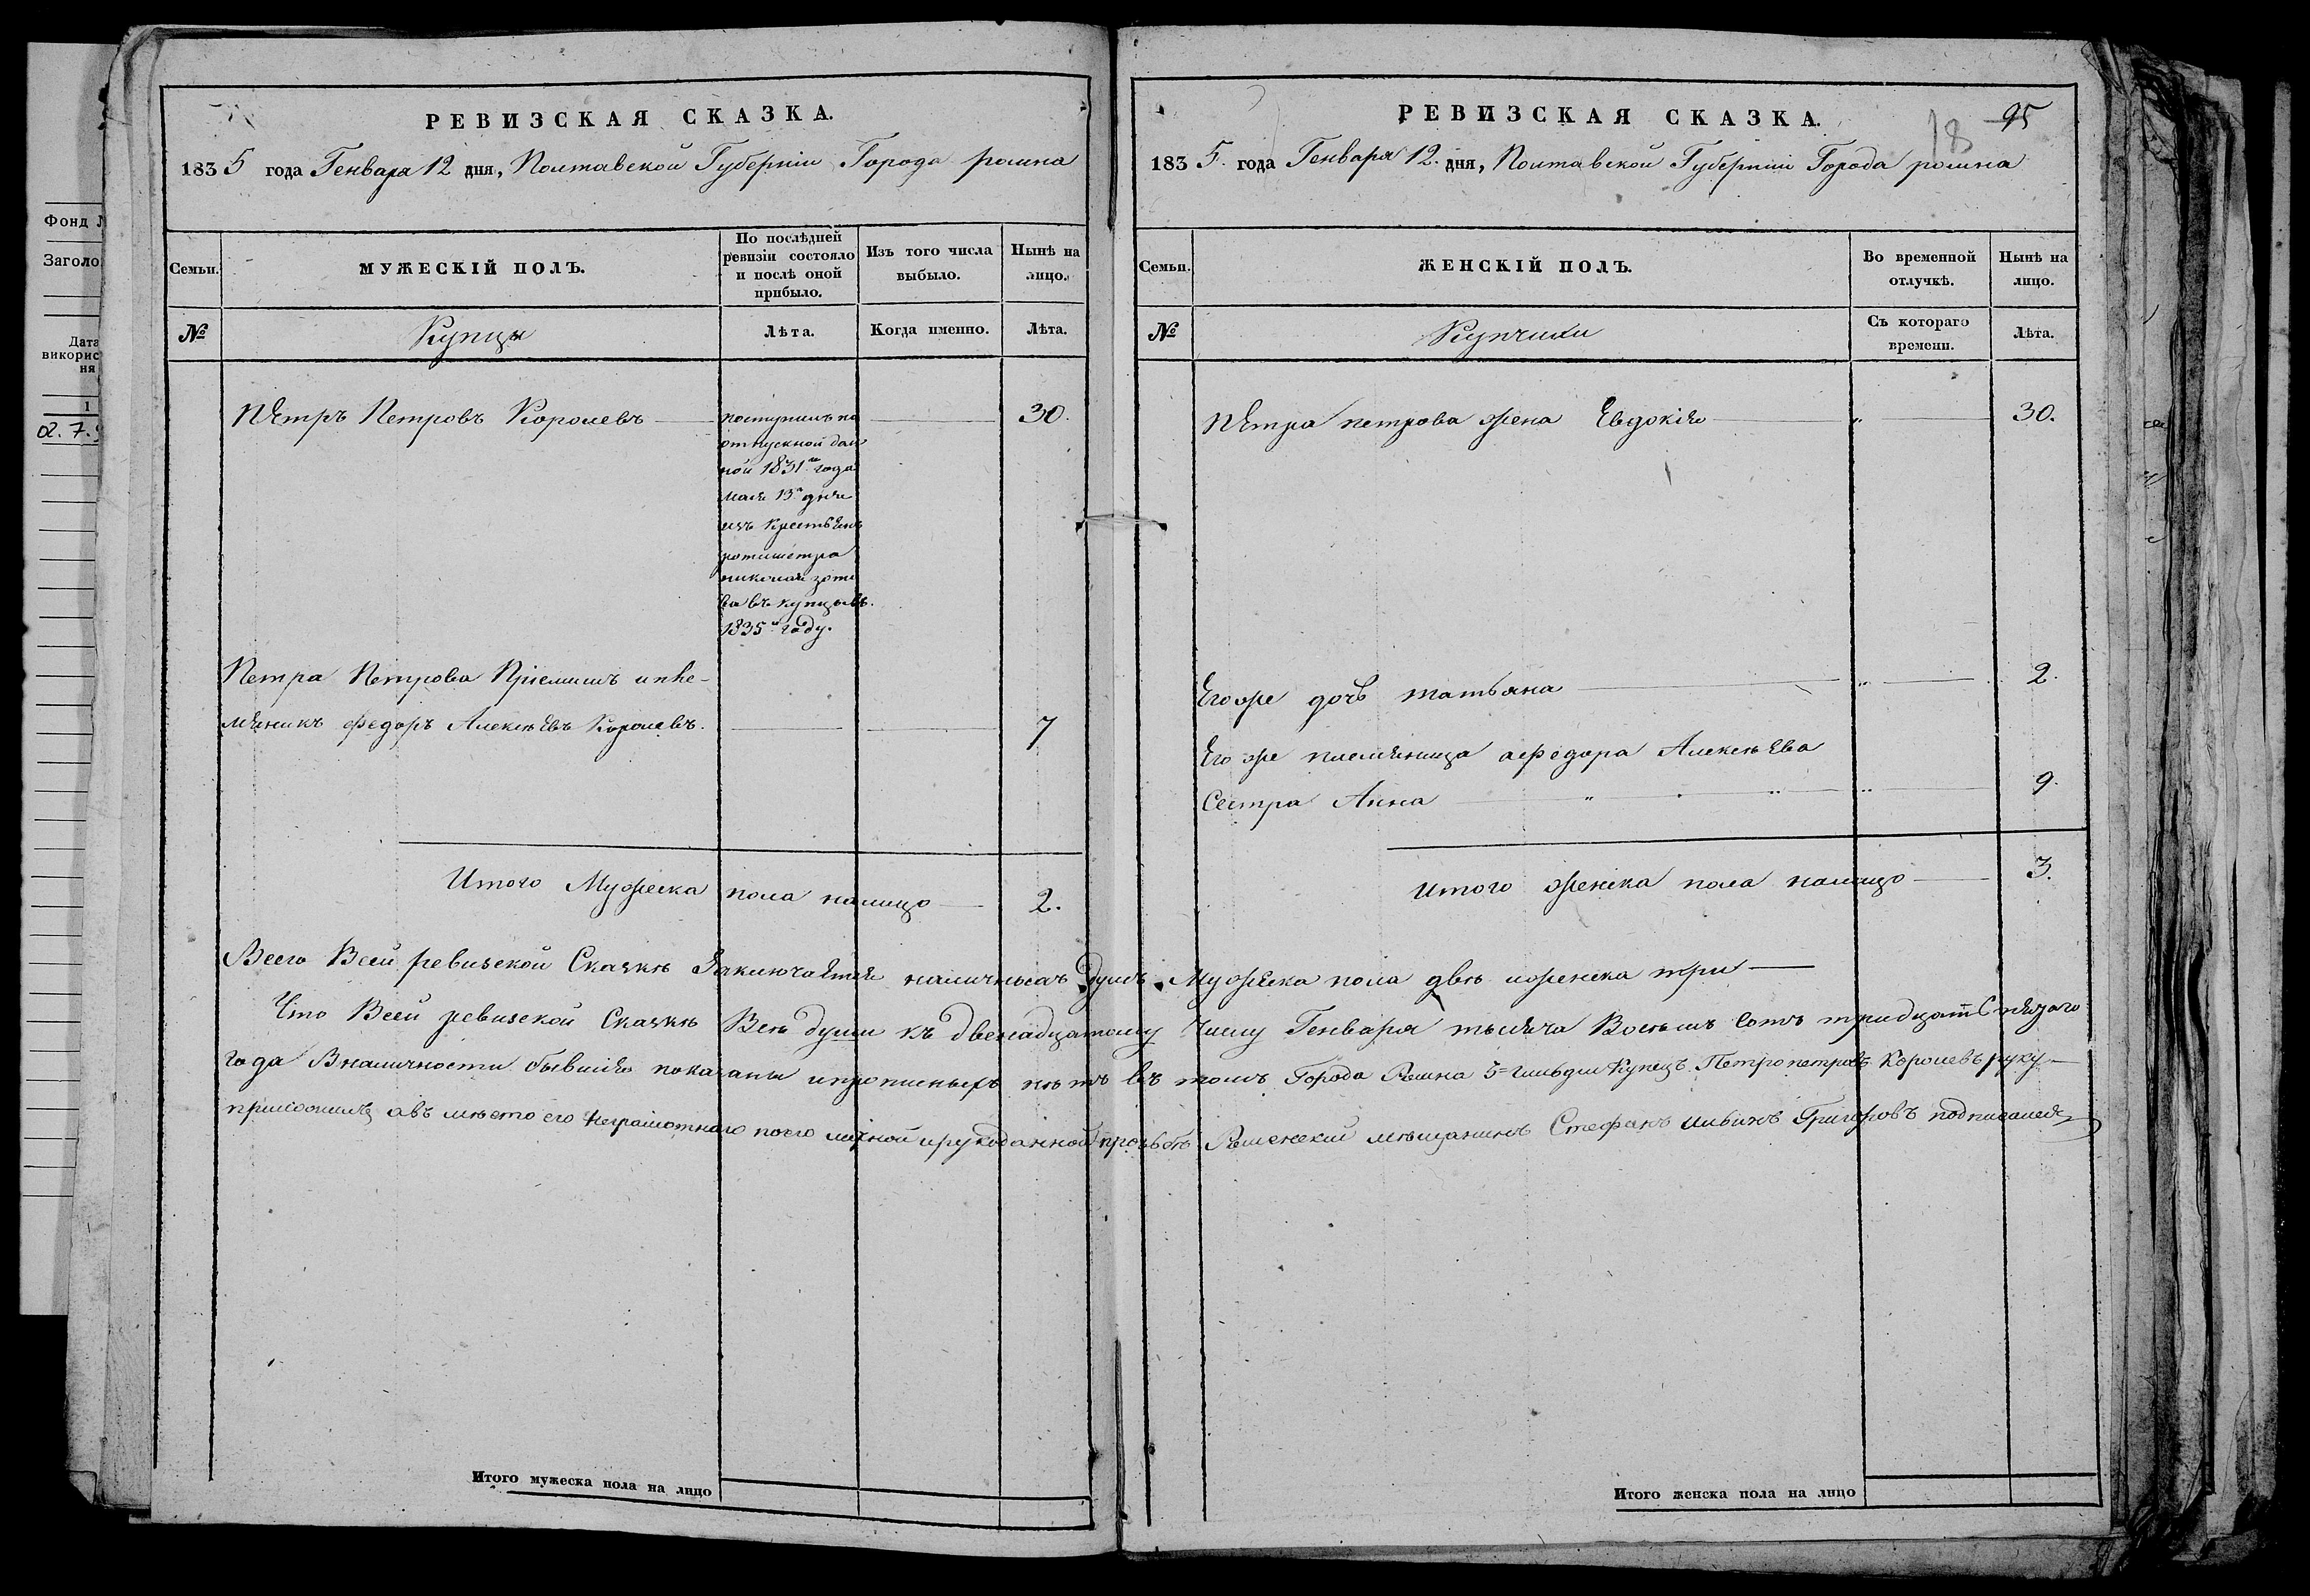 Фонд
Заголо
Дата
викорис
ня
1
02. 7.
РЕВИЗСКАЯ СКАЗКА.
1835 года Генваря 12 дня, Полтавской Губерніи Города ромна
Семьи.
МУЖЕСКІЙ ПОЛЪ.
По послѣдней
ревизіи состояло
и послѣ оной
прибыло.
Изъ того числа
выбыло.
Нынѣ на
лицо.
№
Купцы
Лѣта.
Когда именно.
Лѣта.
Пётръ Петровъ Королевъ
поступилъ по
отпускной дан
ной 1831го года
мая 13го дня
изъ крестьянъ
ротмистра
николая зото
ва въ купцы въ
1835м году.
30.
Петра Петрова Пріемишъ и пле-
мяникъ федоръ Алексѣевъ Королевъ.
7
Итого Мужеска пола налицо
2.
РЕВИЗСКАЯ СКАЗКА.
18
95
1835. года Генваря 12. дня, Полтавской Губерніи Города ромна
Семьи.
ЖЕНСКІЙ ПОЛЪ.
Во временной
отлучкѣ.
Нынѣ на
лицо.
№
Купчихи
Съ котораго
времени.
Лѣта.
Петра петрова жена Евдокія
30.
Егоже дочь татьяна
2.
Его же племяница афедора Алексѣева
Сестра Анна
9.
Итого женска пола налицо
3.
Всего Всей ревизской Сказкѣ Заключается наличныхъ душъ Мужеска пола двѣ иженска три
Что Всей ревизской Сказкѣ Всѣ души къ двенадцатому Числу Генваря тысяча Восѣмъ Сотъ тридцать Пятаго
года Вналичности бывшія показаны ипрописныхъ нѣтъ въ томъ Города Ромна 3=гильдии Купецъ Петро петровъ Королевъ руку
приложилъ авъ мѣсто его неграмотнаго поего личной ирукоданной прозьбѣ Роменский мѣщанинъ Стефанъ Григоровъ подписался
Итого мужеска пола на лицо
Итого женска пола на лицо